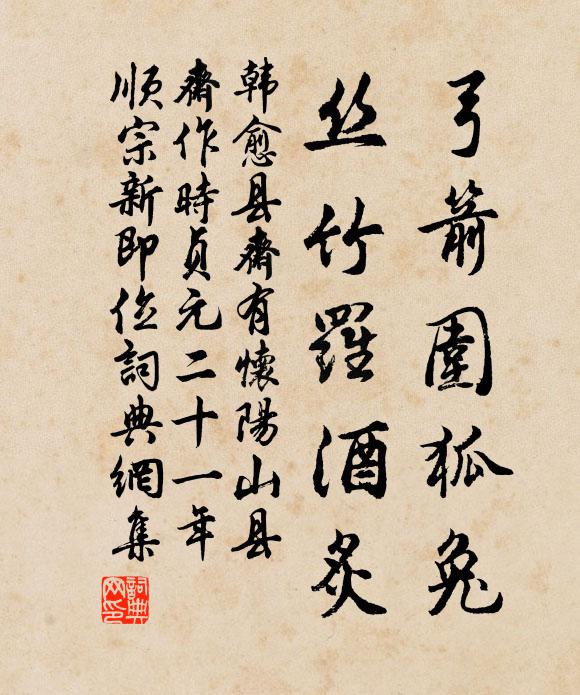 弓箭圍狐兔
丝竹羅酒炙
韩愈县齋有懷陽山县
齋作時貞元二十一年
順宗新即位詞典網集
詞典
网印